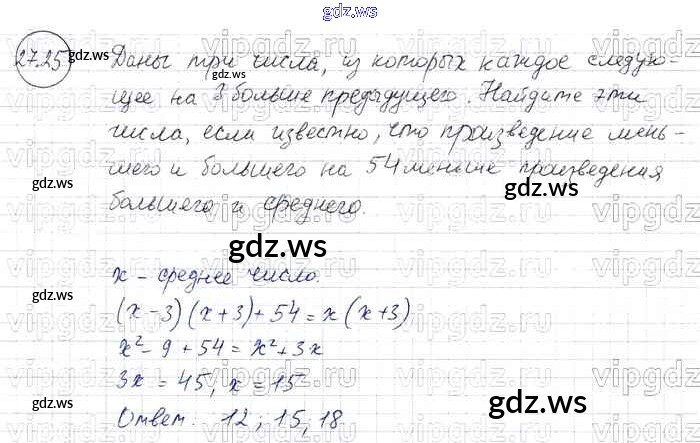 gdz.ws
27.25 Даны три числа, из которых каждое следую-
щее на 3 больше предыдущего. Найдите эти
числа, если известно, что произведение мень-
шего и большего на 54 меньше произведения
большего и среднего.
x – среднее число.
(x-3)(x+3)+54=x(x+3)
x²-9+54=x²+3x
3x=45, x=15
Ответ: 12; 15, 18
gdz.ws
gdz.ws
gdz.ws
gdz.ws
gdz.ws
gdz.ws
gdz.ws
gdz.ws
gdz.ws
gdz.ws
vipgdz.ru